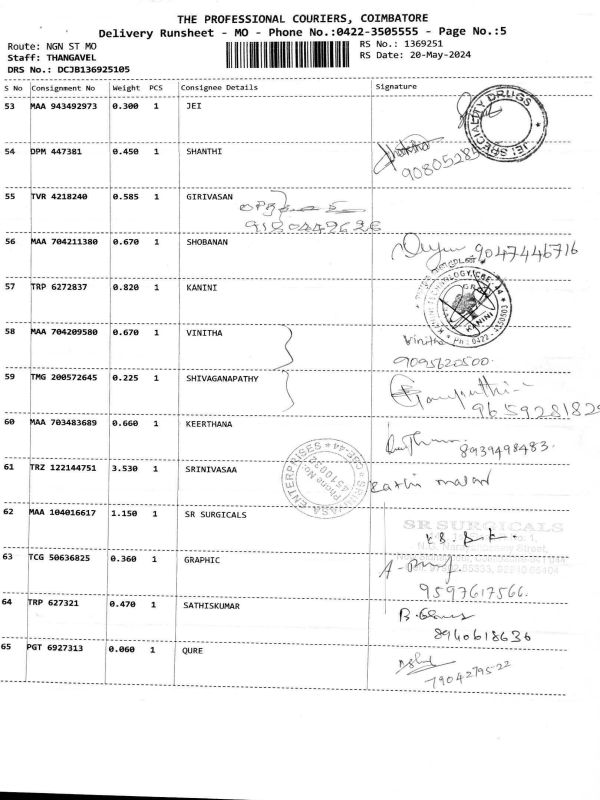 THE PROFESSIONAL COURIERS, COIMBATORE
Delivery Runsheet - MO - Phone No.:0422-3505555 - Page No.:5
Route: NGN ST MO
RS No.: 1369251
Staff: THANGAVEL
RS Date: 20-May-2024
DRS No.: DCJB136925105
S No Consignment No Weight PCS Consignee Details Signature
53 MAA 943492973 0.300 1 JEI
JEI SPECIALITY DRUGS
54 DPM 447381 0.450 1 SHANTHI
55 TVR 4218240 0.585 1 GIRIVASAN
56 MAA 704211380 0.670 1 SHOBANAN
9047446716
57 TRP 6272837 0.820 1 KANINI
KANINI
58 MAA 704209580 0.670 1 VINITHA
Vinitha
9095620500
59 TMG 200572645 0.225 1 SHIVAGANAPATHY
9659281829
60 MAA 703483689 0.660 1 KEERTHANA
8939498483
61 TRZ 122144751 3.530 1 SRINIVASAA
ENTERPRISES
Phone No.
62 MAA 104016617 1.150 1 SR SURGICALS
SR SURGICALS
63 TCG 50636825 0.360 1 GRAPHIC
9597617566
64 TRP 627321 0.470 1 SATHISKUMAR
8940618636
65 PGT 6927313 0.060 1 QURE
7904279522